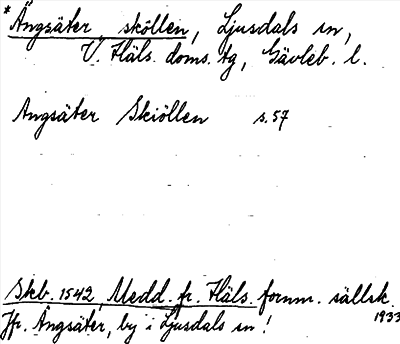 * Ängsäter sköllen, Ljusdals sn,
V. Häls. doms. tg, Gävleb. l.
Angsäter Skiöllen s. 57
Skb. 1542, Medd. fr. Häls. fornm. sällsk.
1933
Jfr. Ängsäter, by i Ljusdals sn!